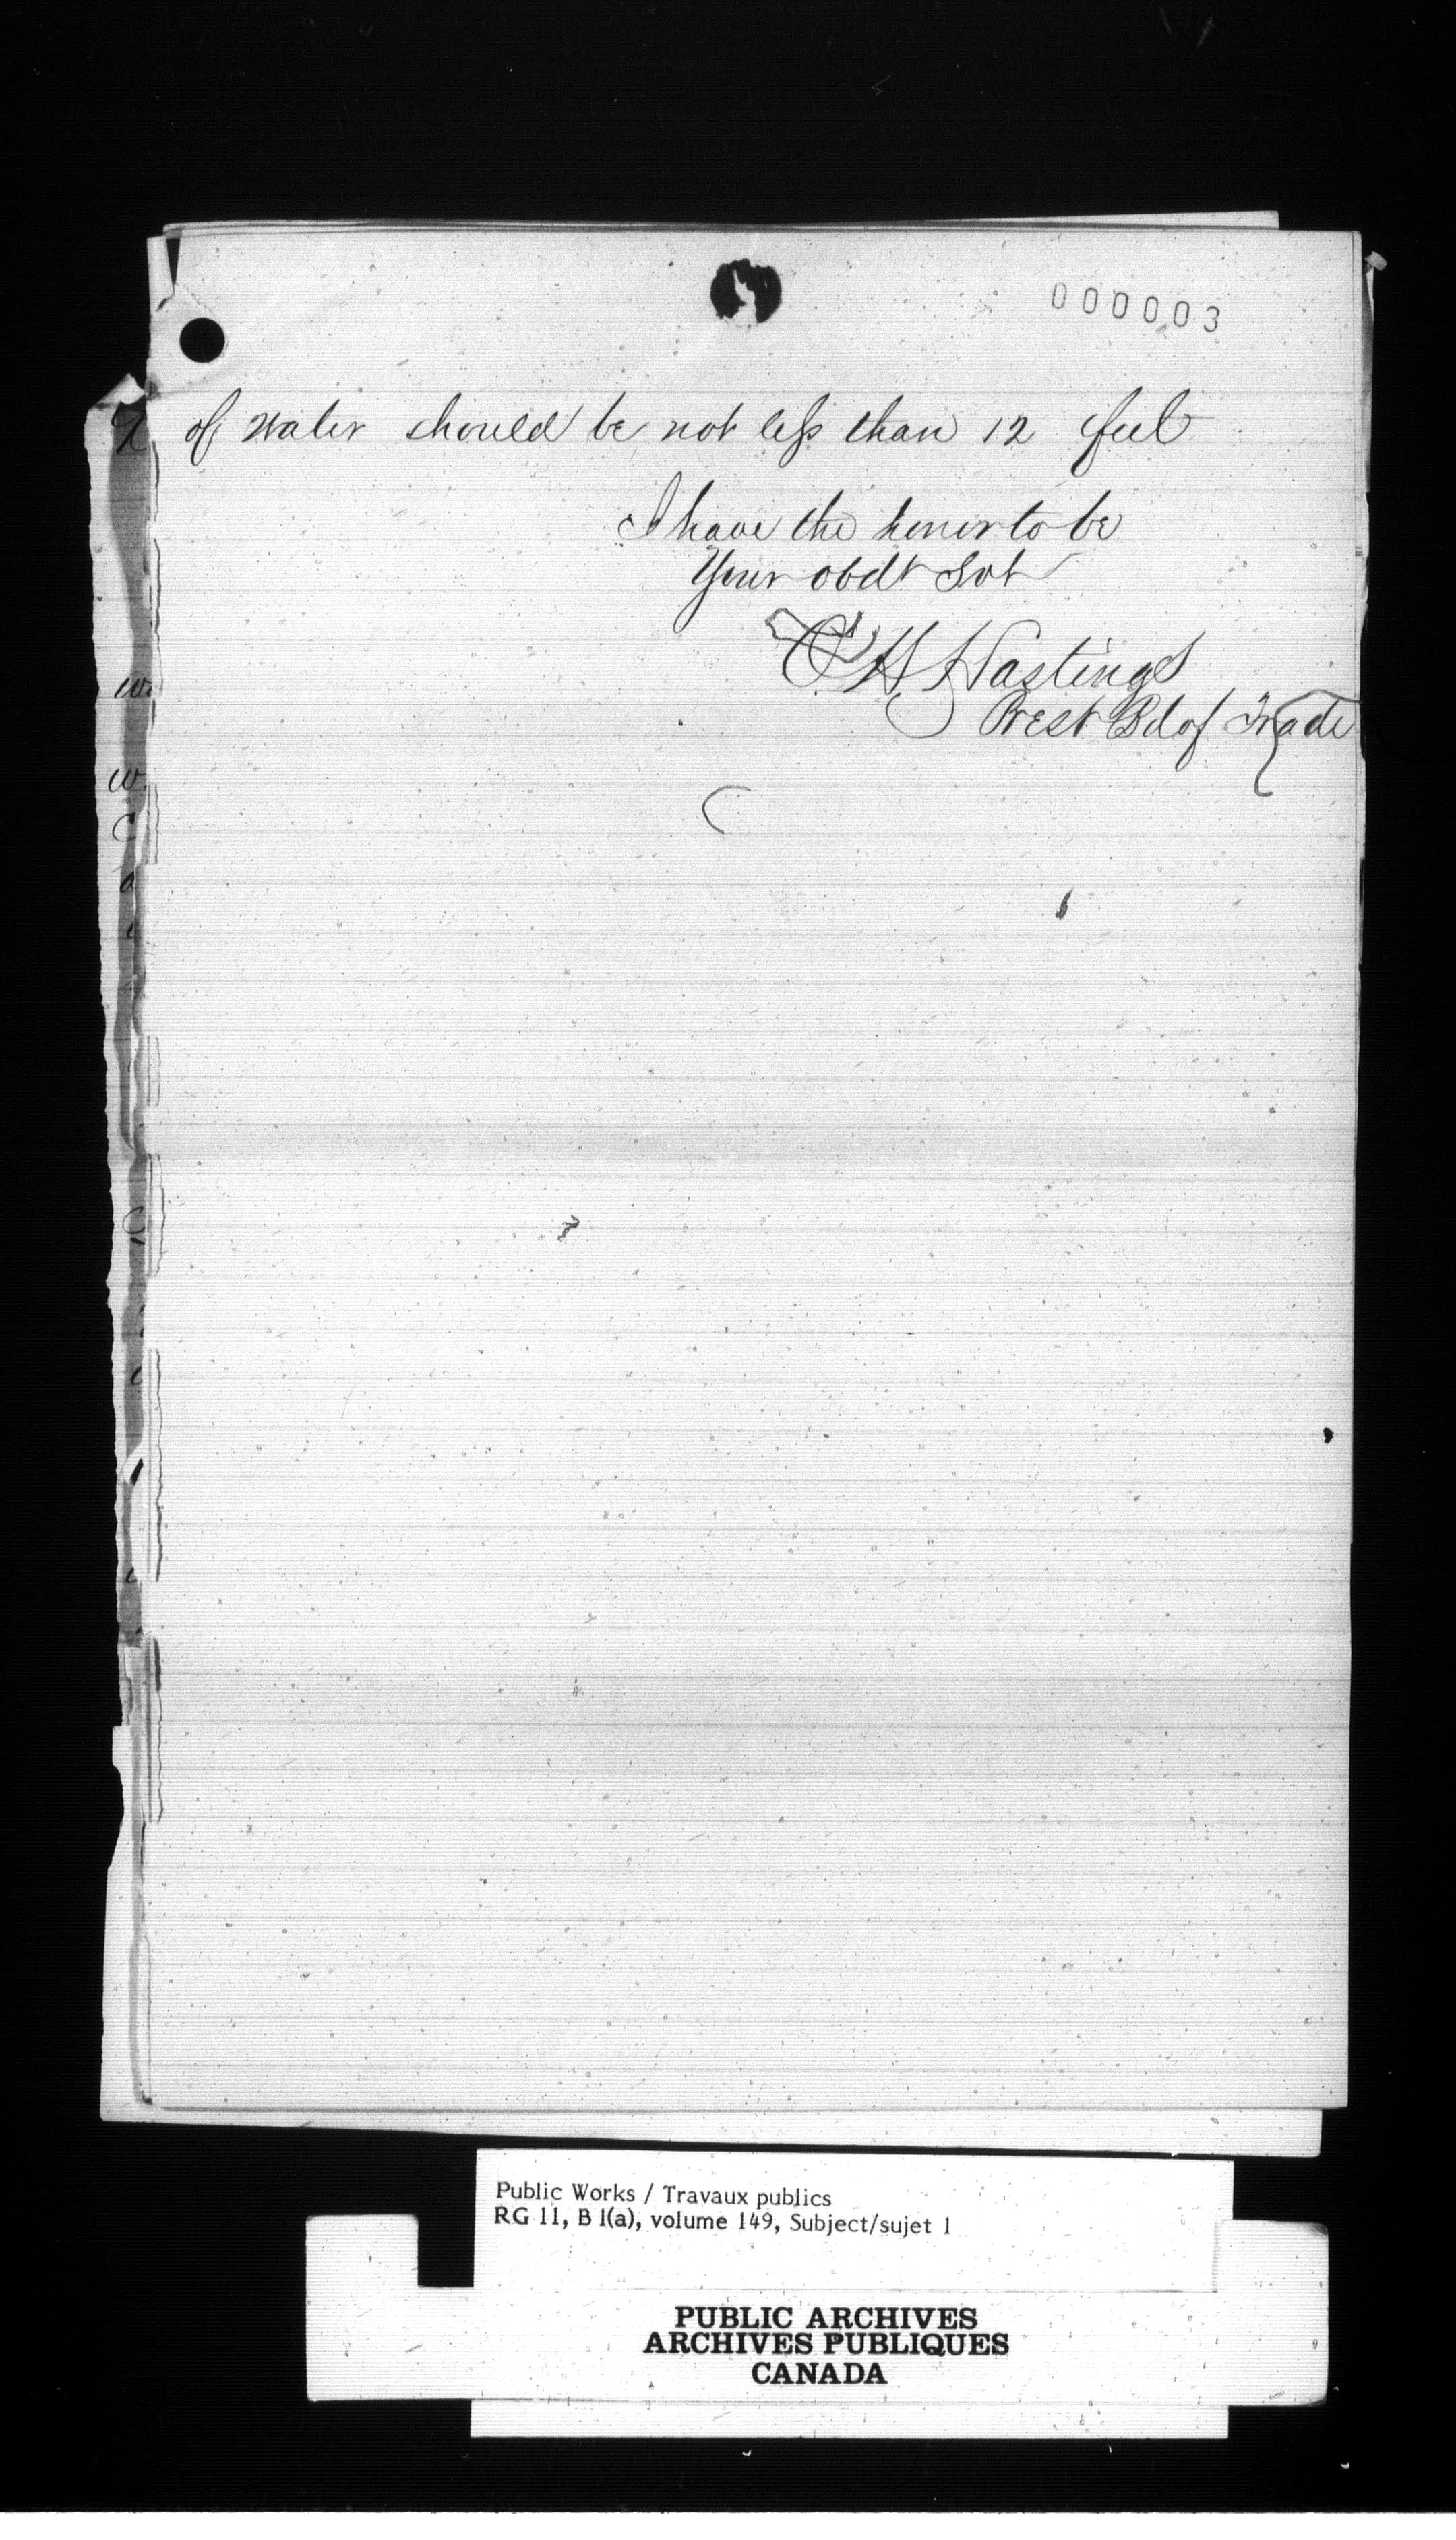 000003
of water should be not less than 12 feet
I have the honor to be
Your obdt Svt
H. Hastings
Prest Bd of Trade
Public Works / Travaux publics
RG 11, B 1(a), volume 149, Subject/sujet 1
PUBLIC ARCHIVES
ARCHIVES PUBLIQUES
CANADA